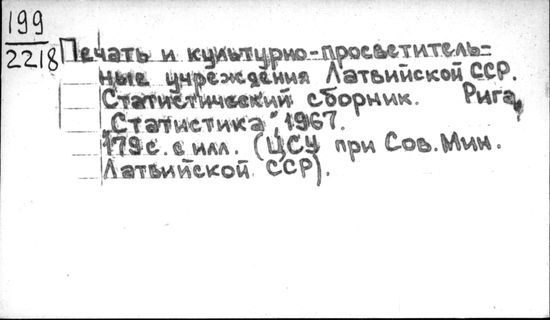 199
2218
Печать и культурно-просветитель=
ные учреждения Латвийской ССР.
Статистический сборник. Рига,
„Статистика", 1967.
179 с. с илл. (ЦСУ при Сов. Мин.
Латвийской ССР).